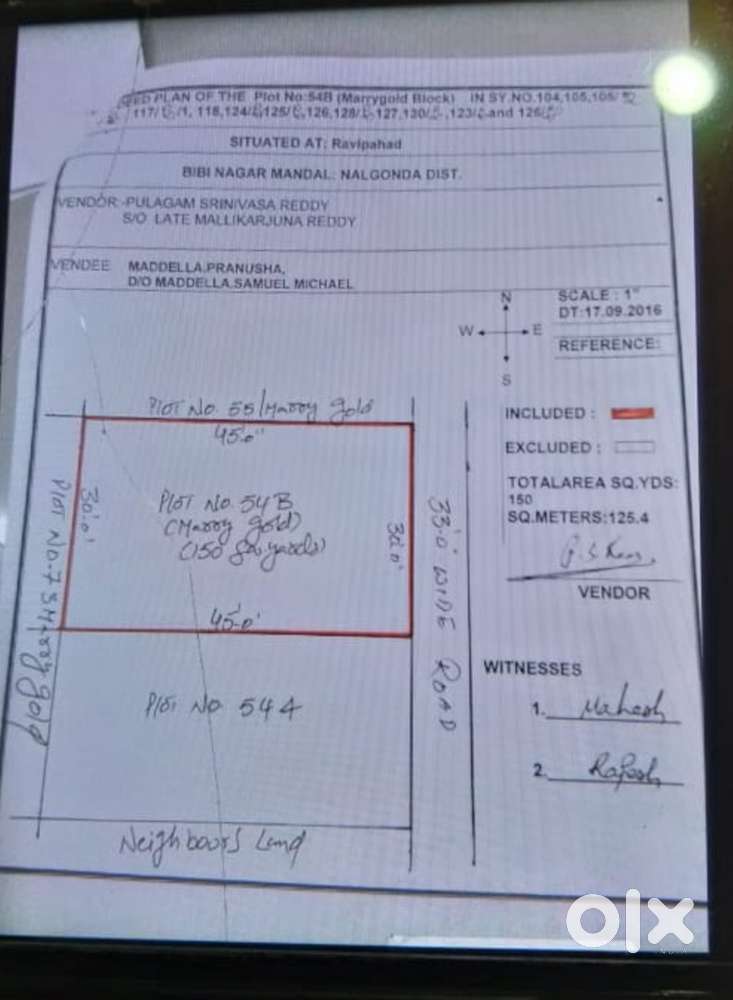 PLAN OF THE Plot No:54B (Marrygold Block) IN SY.NO.104,105,106/
117/ /1, 118,124/ 125/ ,126,128/ 127,130/ ,123/ and 126/
SITUATED AT: Ravipahad
BIBI NAGAR MANDAL: NALGONDA DIST.
VENDOR:-PULAGAM SRINIVASA REDDY
S/O LATE MALLIKARJUNA REDDY
VENDEE MADDELLA.PRANUSHA,
D/O MADDELLA.SAMUEL MICHAEL
N
W E
S
SCALE : 1"
DT:17.09.2016
REFERENCE:
INCLUDED :
EXCLUDED :
TOTALAREA SQ.YDS:
150
SQ.METERS:125.4
VENDOR
WITNESSES
1. Mahesh
2. Rajesh
Plot No. 55/Marry gold
45'.0"
30'.0'
Plot No. 54B
(Marry gold)
(150 Sq.yards)
30'.0'
45'.0'
Plot No. 73 Marry gold
33'.0' WIDE ROAD
Plot No 54A
Neighbours Land
olx